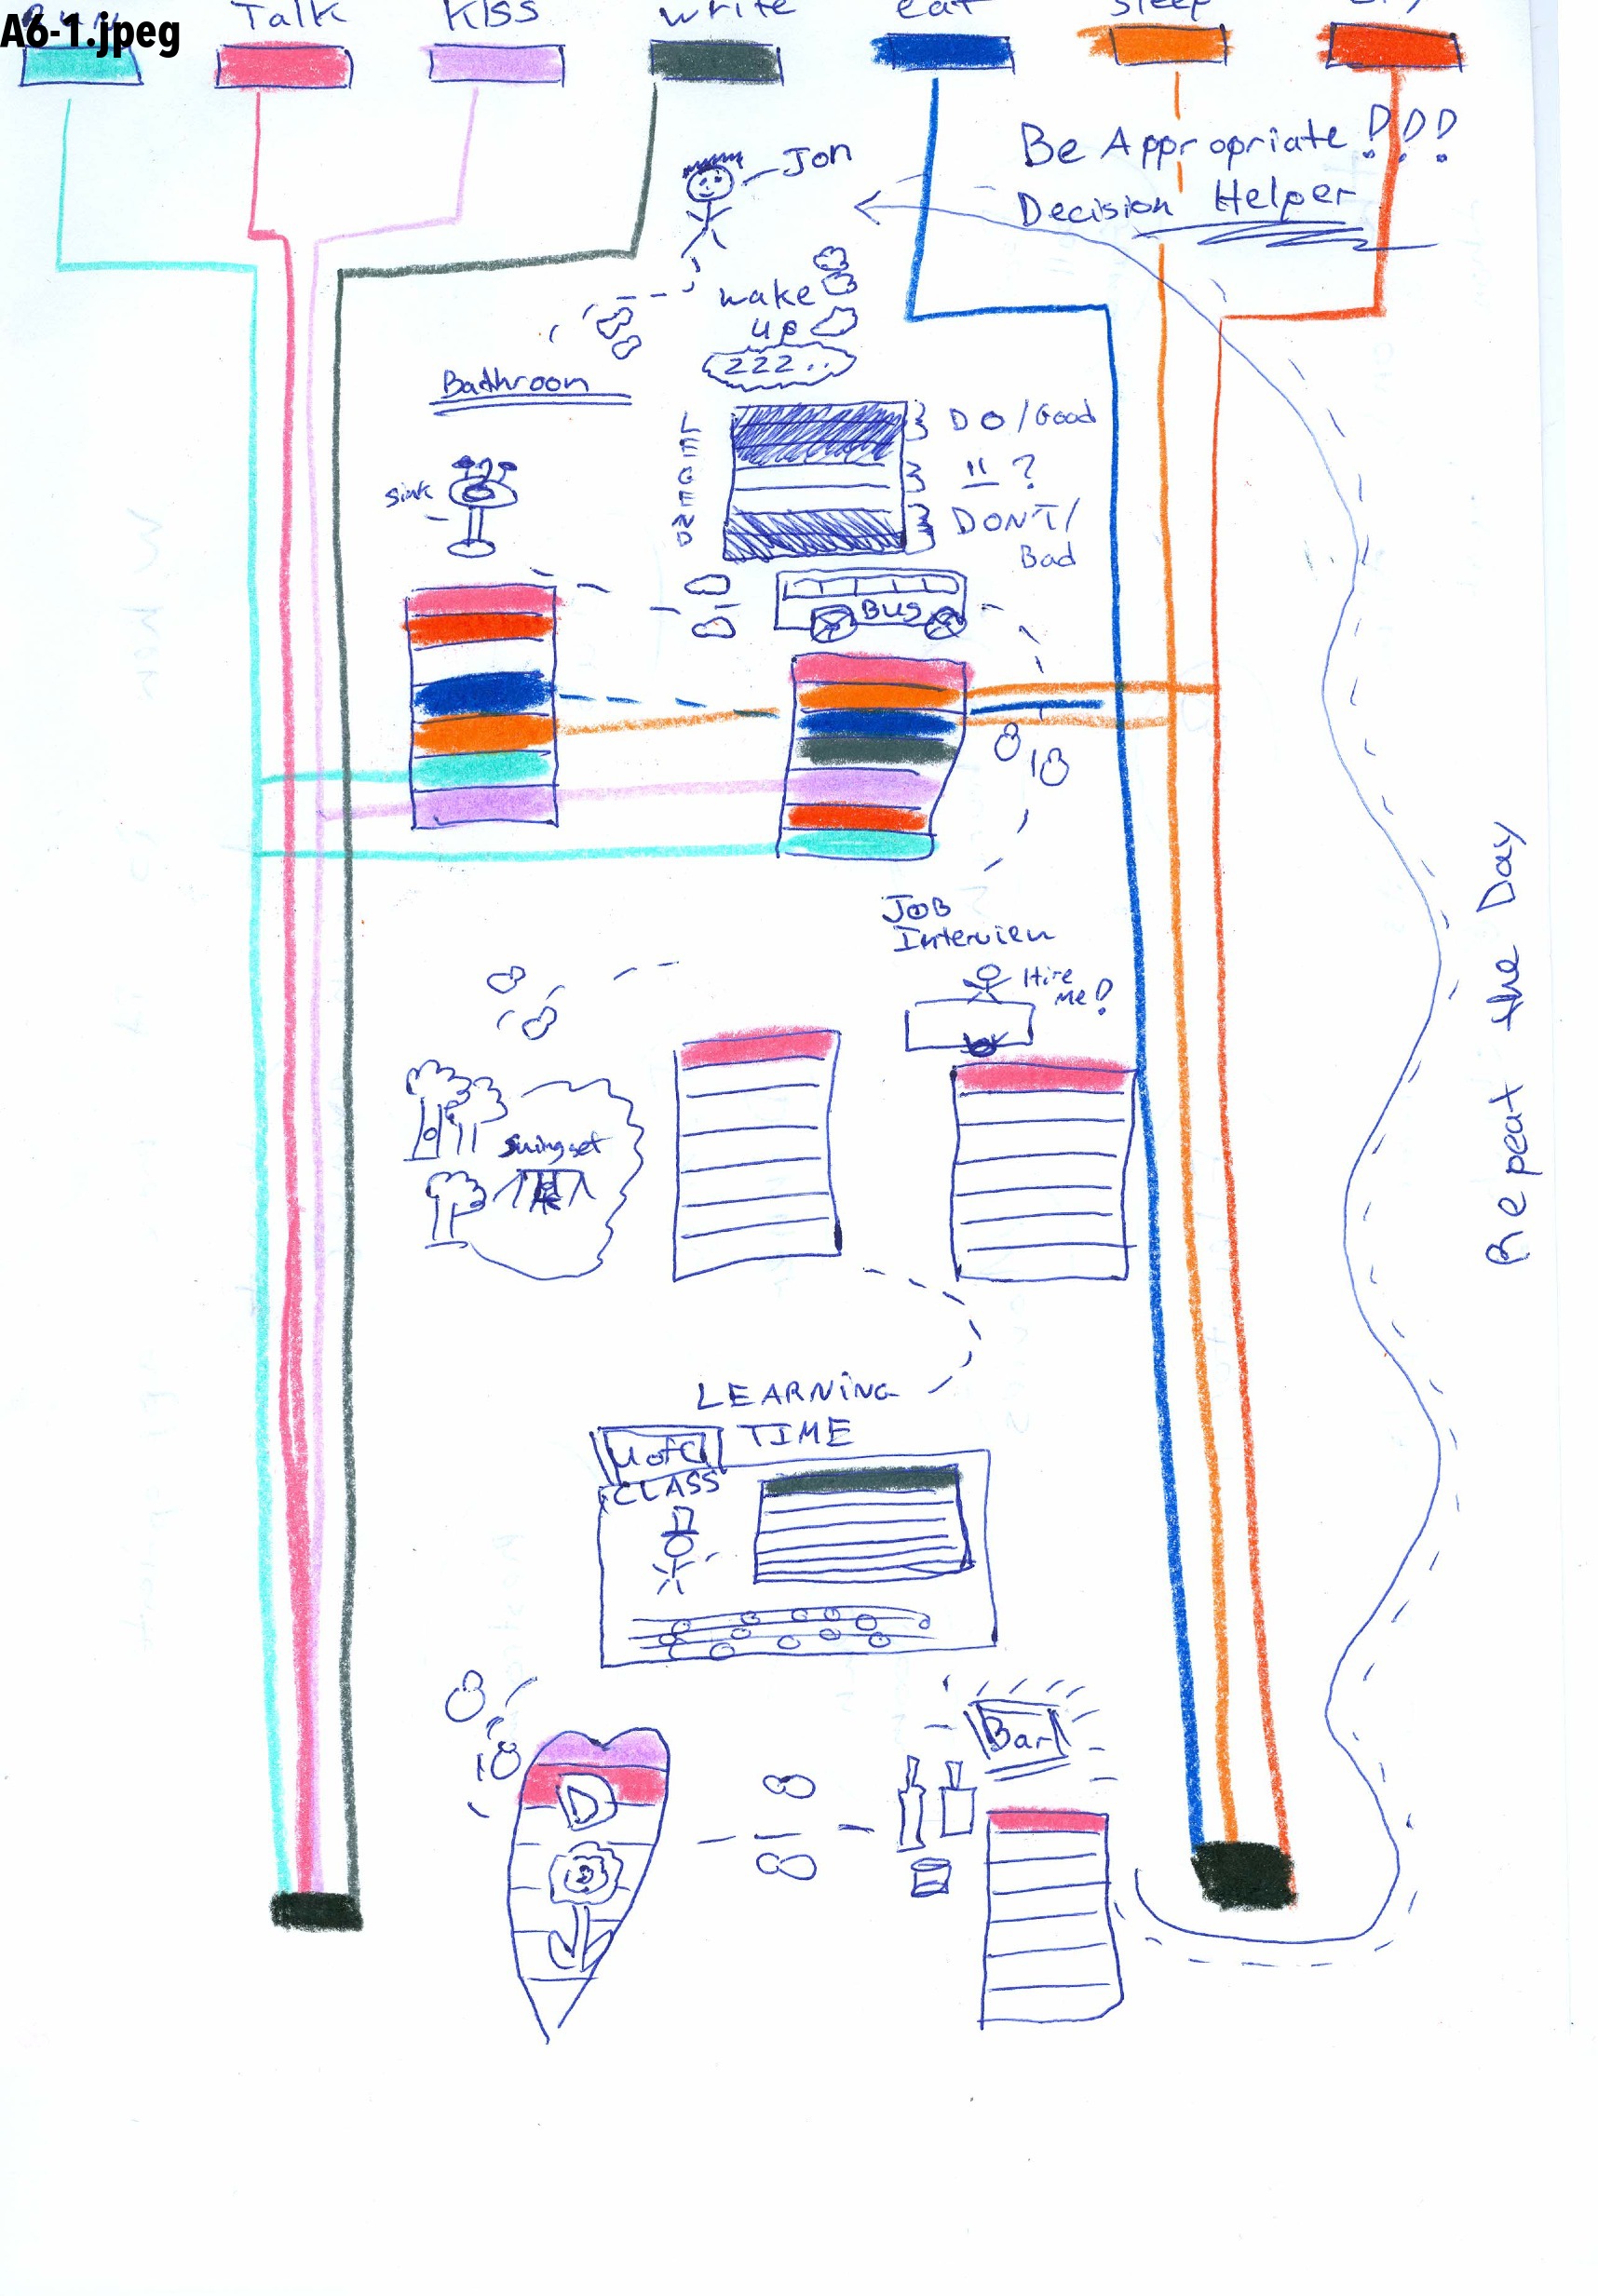 A6-1.jpeg
Talk KISS write eat sleep
Jon
Be Appropriate!!!
Decision Helper
wake
up
zzz..
Bathroon
LEGEND
DO/Good
= ?
DON'T/
Bad
sink
BUS
JOB
Interview
Hire
me!
Swingset
Repeat the Day
LEARNING
TIME
U of C
CLASS
Bar
D